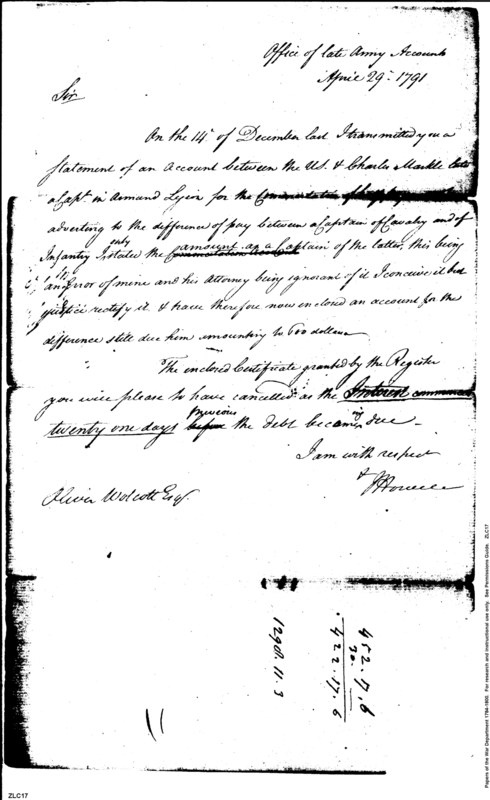 Office of late Army Accounts
April 29th 1791
Sir
On the 14th of December last I transmitted you a
statement of an account between the U.S. & Charles Markle late
a Capt in Armand Legion for the Commutation of
adverting to the difference of pay between a Captain of Cavalry and of
Infantry I stated only the amount as a Captain of the latter, this being
an error of mine and his Attorney being ignorant of it I conceive it but
justice rectify it & have therefore now enclosed an account for the
difference still due him amounting to 600 dollars
The enclosed Certificate granted by the Register
you will please to have cancelled as the Interest
twenty one days previous before the debt becoming due
I am with respect
J Howell
Oliver Wolcott Esqr.
452.17.6
30.
422.17.6
1290.11.3
Papers of the War Department 1784-1800. For research and instructional use only. See Permissions Guide. ZLC17
ZLC17